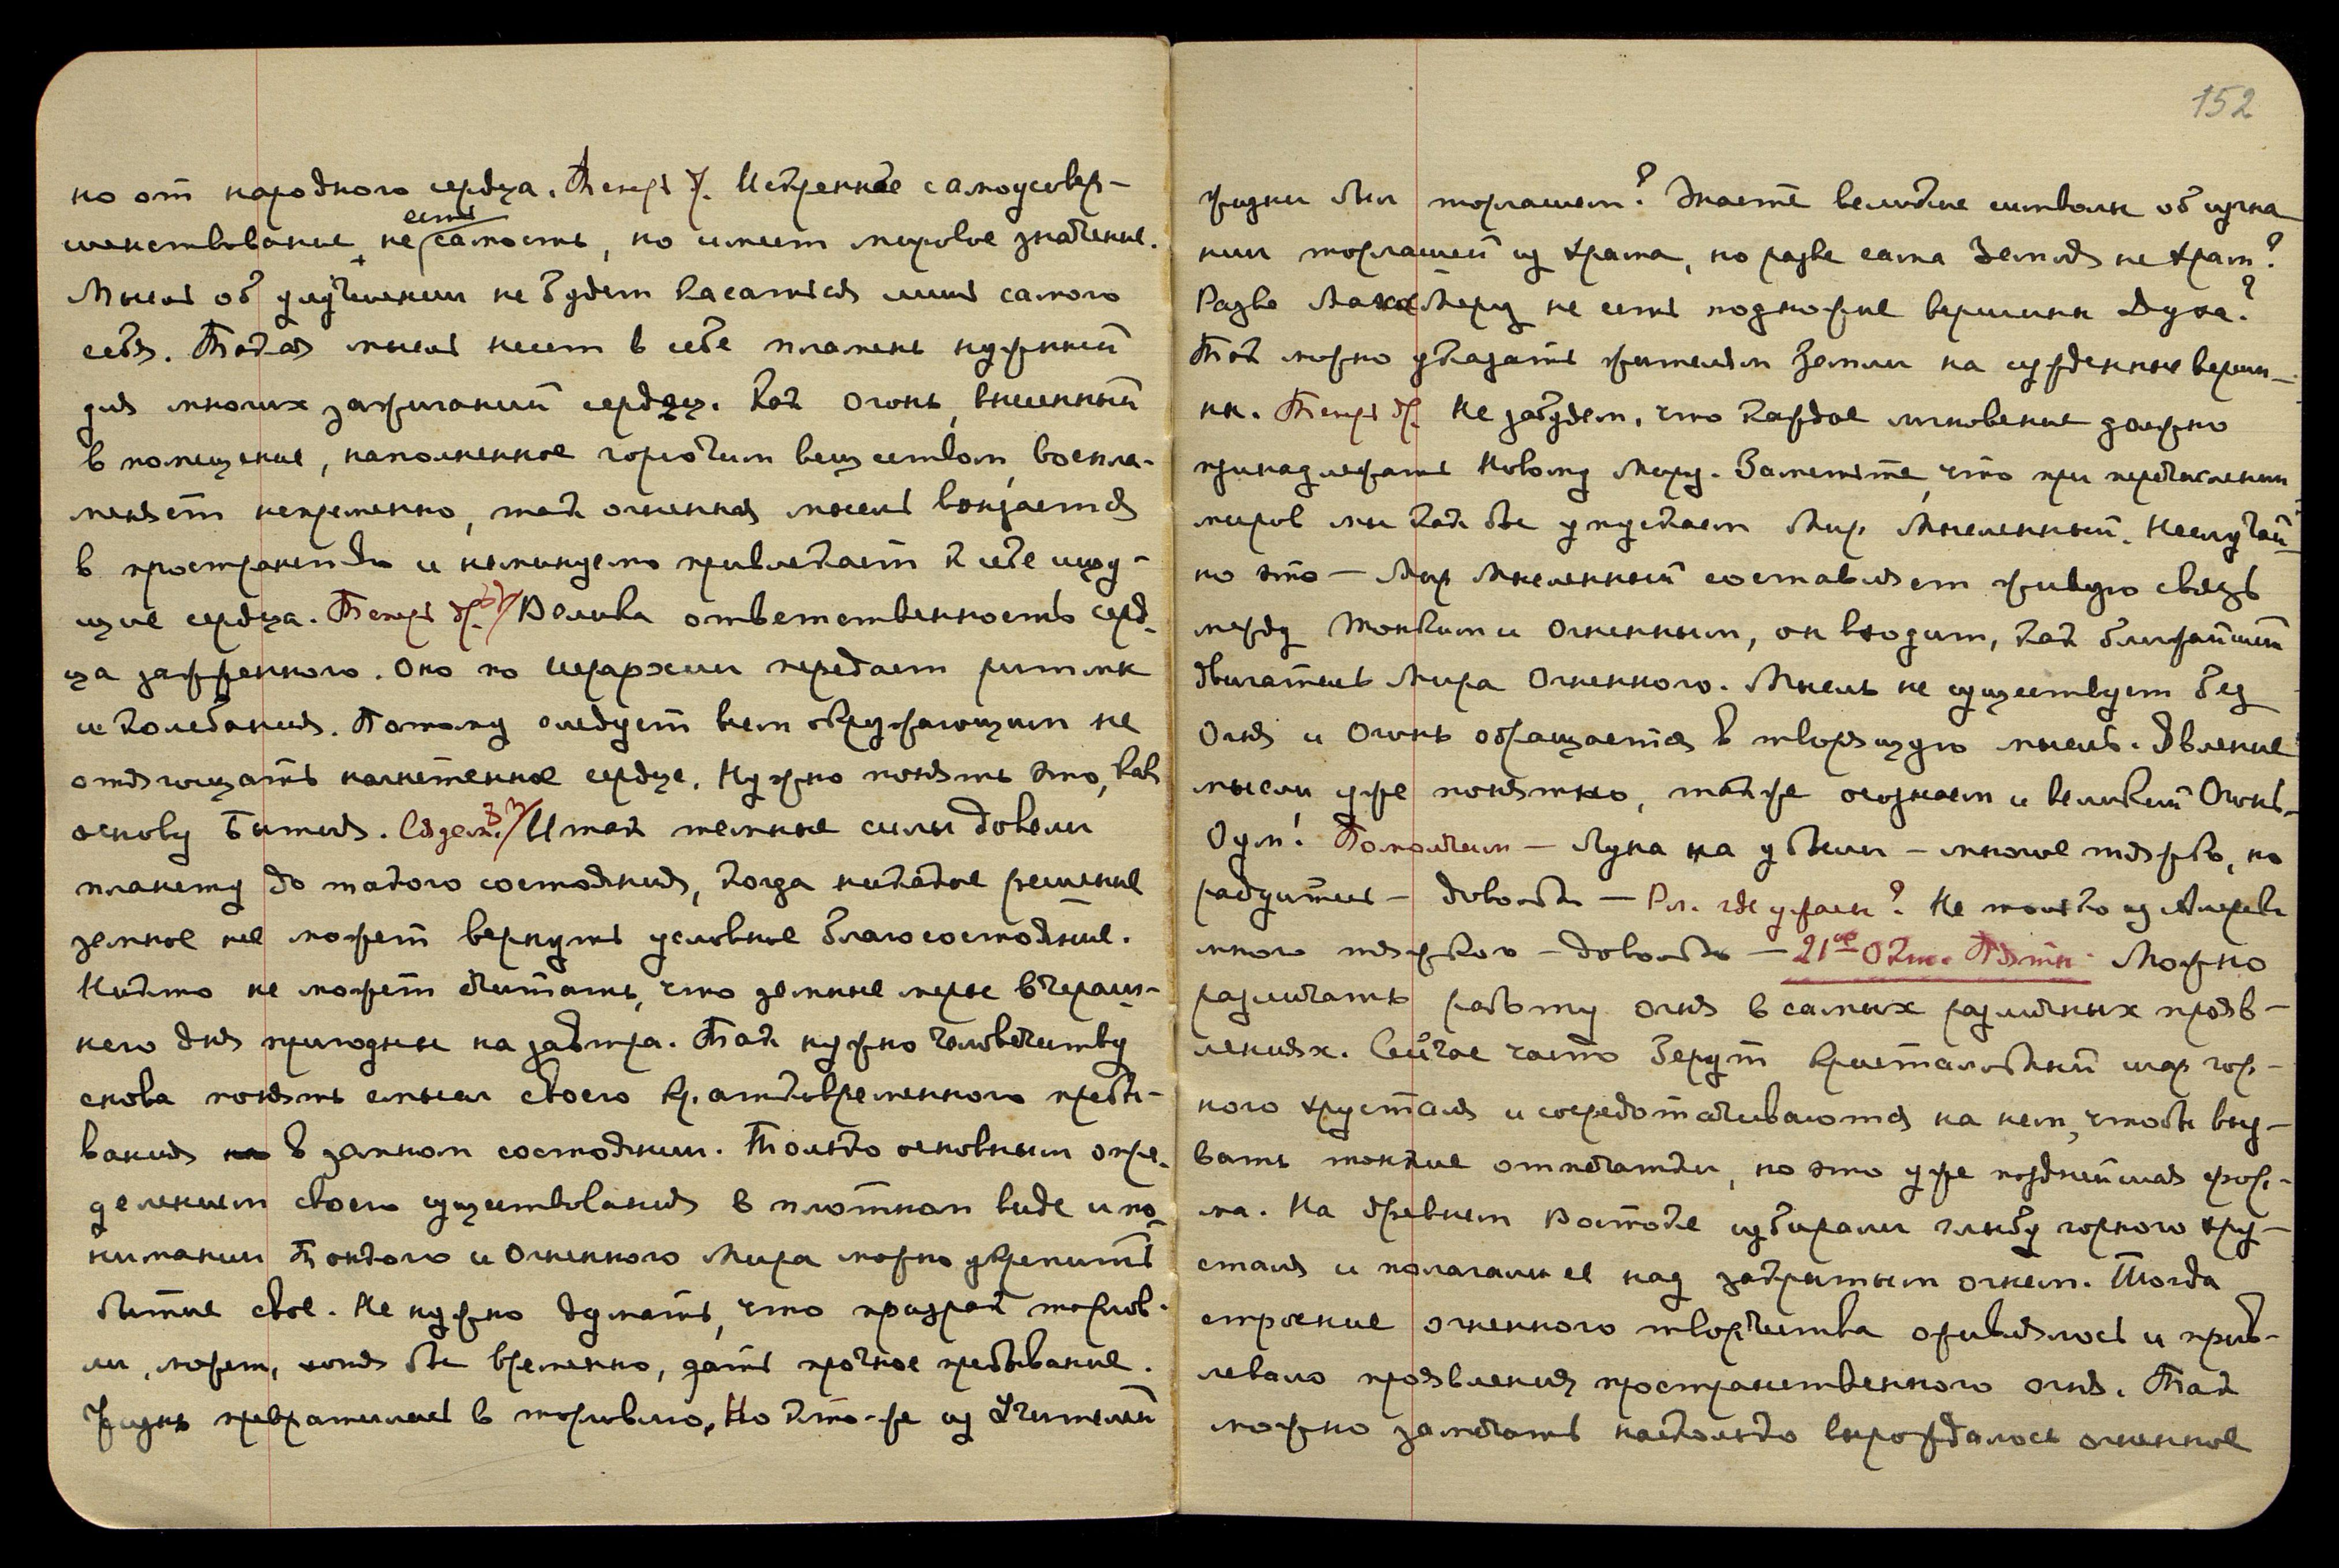 но от народного сердца. Теперь др. Искреннее самоусовер-
шенствование не есть самость, но имеет мировое значение.
Мысль об улучшении не будет касаться лишь самого
себя. Такая мысль несет в себе пламень нужный
для многих зажиганий сердец. Как огонь, внесенный
в помещение, наполненное горючим веществом, воспла-
меняет непременно, так огненная мысль вонзается
в пространство и неминуемо привлекает к себе ищу-
щие сердца. Теперь др. Велика ответственность серд-
ца зажженного. Оно по Иерархии передает ритмы
и колебания. Потому следует всем окружающим не
отягощать магнетенное сердце. Нужно понять это, как
основу Бытия. Сядем. Итак темные силы довели
планету до такого состояния, когда никакое решение
земное не может вернуть условное благосостояние.
Никто не может считать, что земные меры вчераш-
него дня пригодны на завтра. Так нужно человечеству
снова понять смысл своего кратковременного пребы-
вания в земном состоянии. Только основным опре-
делением своего существования в плотном виде и по-
ниманием Тонкого и Огненного Мира можно укрепить
бытие свое. Не нужно думать, что призрак торгов-
ли, может, хотя бы временно, дать прочное пребывание.
Жизнь превратилась в торговлю, Но кто-же из Учителей
152
жизни был торгашем? Знаете великие символы об изгна-
нии торгашей из храма, но разве сама Земля не храм?
Разве Маха Меру не есть подножие вершины Духа?
Так можно указать жителям Земли на сужденные верши-
ны. Теперь др. Не забудем, что каждое мгновение должно
принадлежать Новому Миру. Заметьте, что при перечислении
миров мы как бы упускаем Мир Мысленный. Неслучай-
но это — Мир Мысленный составляет живую связь
между Тонким и Огненным, он входит, как ближайший
двигатель Мира Огненного. Мысль не существует без
Огня и Огонь обращается в творящую мысль. Явление
мысли уже понятно, также осознаем и великий Огонь-
Оум! Помолчим — Луна на убыли — многое тяжко, но
радуйтесь — довольно — Рл. где ужасы? Не только из Америки
много тяжкого — довольно — 21ое Окт. Пятн. Можно
различать работу огня в самых различных прояв-
лениях. Сейчас часто берут кристальный шар гор-
ного хрусталя и сосредотачиваются на нем, чтобы вы-
вать тонкие отпечатки, но это уже позднейшая фор-
ма. На древнем Востоке избирали глыбу горного хру-
сталя и полагали ее над закрытым огнем. Тогда
строение огненного творчества оживлялось и прив-
лекало проявления пространственного огня. Так
можно замечать насколько вырождалось огненное